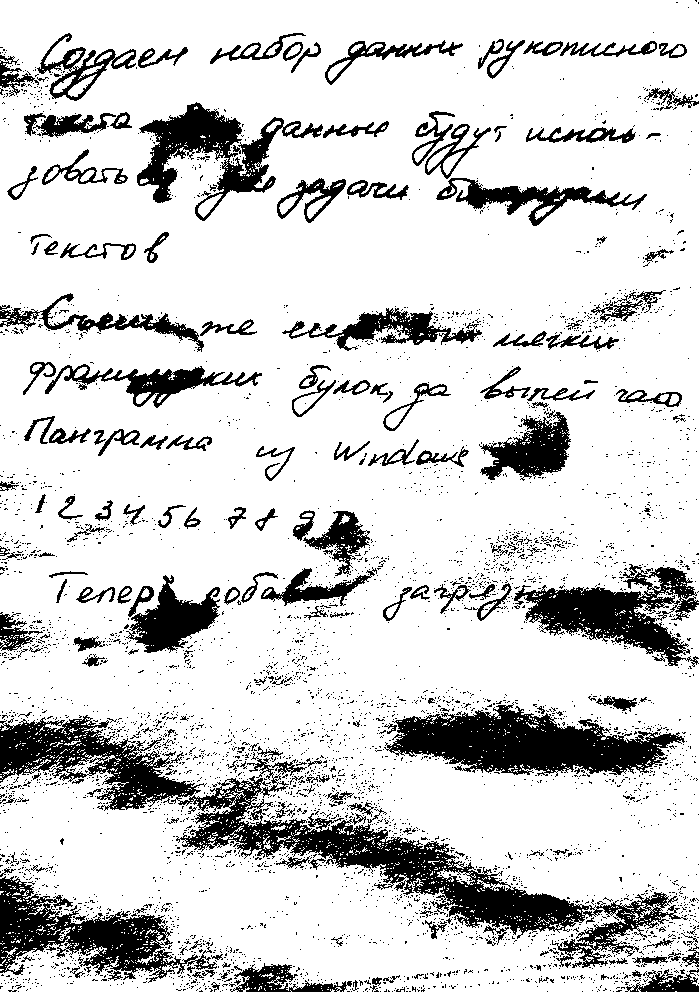 Создаем набор данных рукописного
текста данные будут исполь-
зоваться для задачи
текстов
Съешь же мягких
французких булок, да выпей чаю
Панграмма из Windows
1 2 3 4 5 6 7 8 9
Теперь